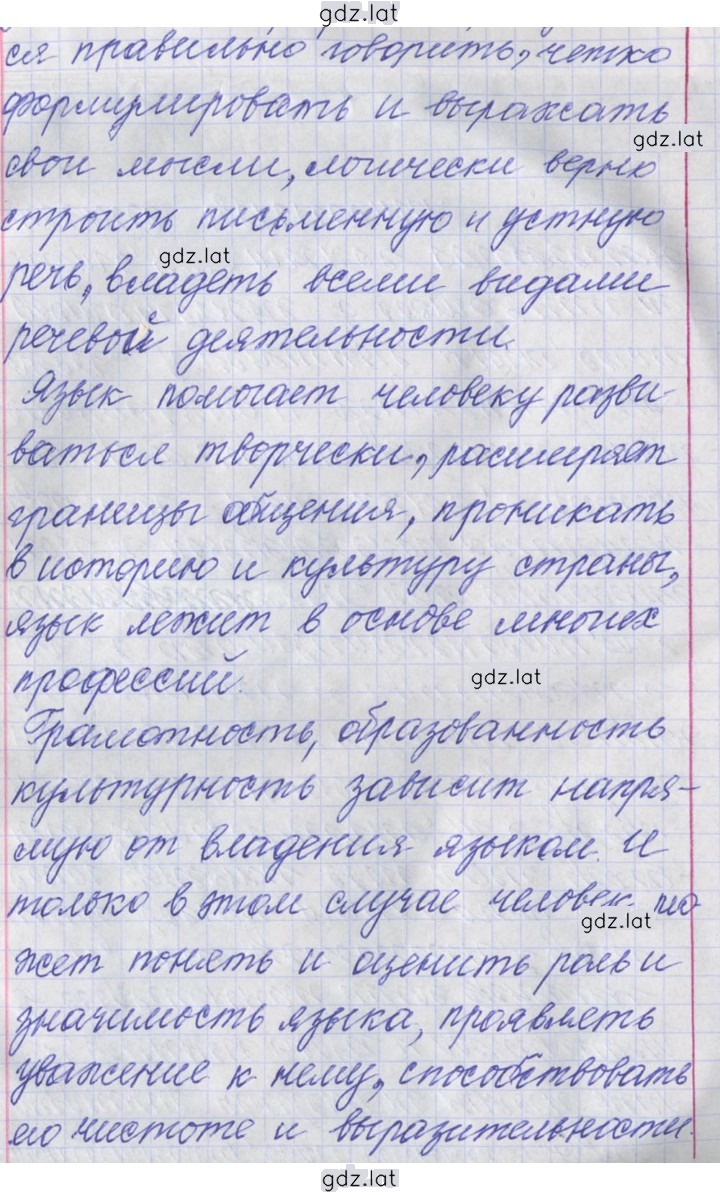 gdz.lat
ся правильно говорить, четко
формулировать и выражать
gdz.lat
свои мысли, логически верно
строить письменную и устную
gdz.lat
речь, владеть всеми видами
речевой деятельности.
Язык помогает человеку разви-
ваться творчески, расширяет
границы общения, проникать
в историю и культуру страны,
язык лежит в основе многих
профессий.
gdz.lat
Грамотность, образованность
культурность зависит напря-
мую от владения языком. И
только в этом случае человек мо
gdz.lat
жет понять и оценить роль и
значимость языка, проявлять
уважение к нему, способствовать
его чистоте и выразительности.
gdz.lat